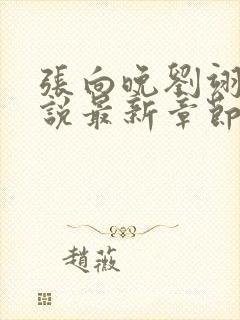 張向晚劉翊
說最新章節
趙薇